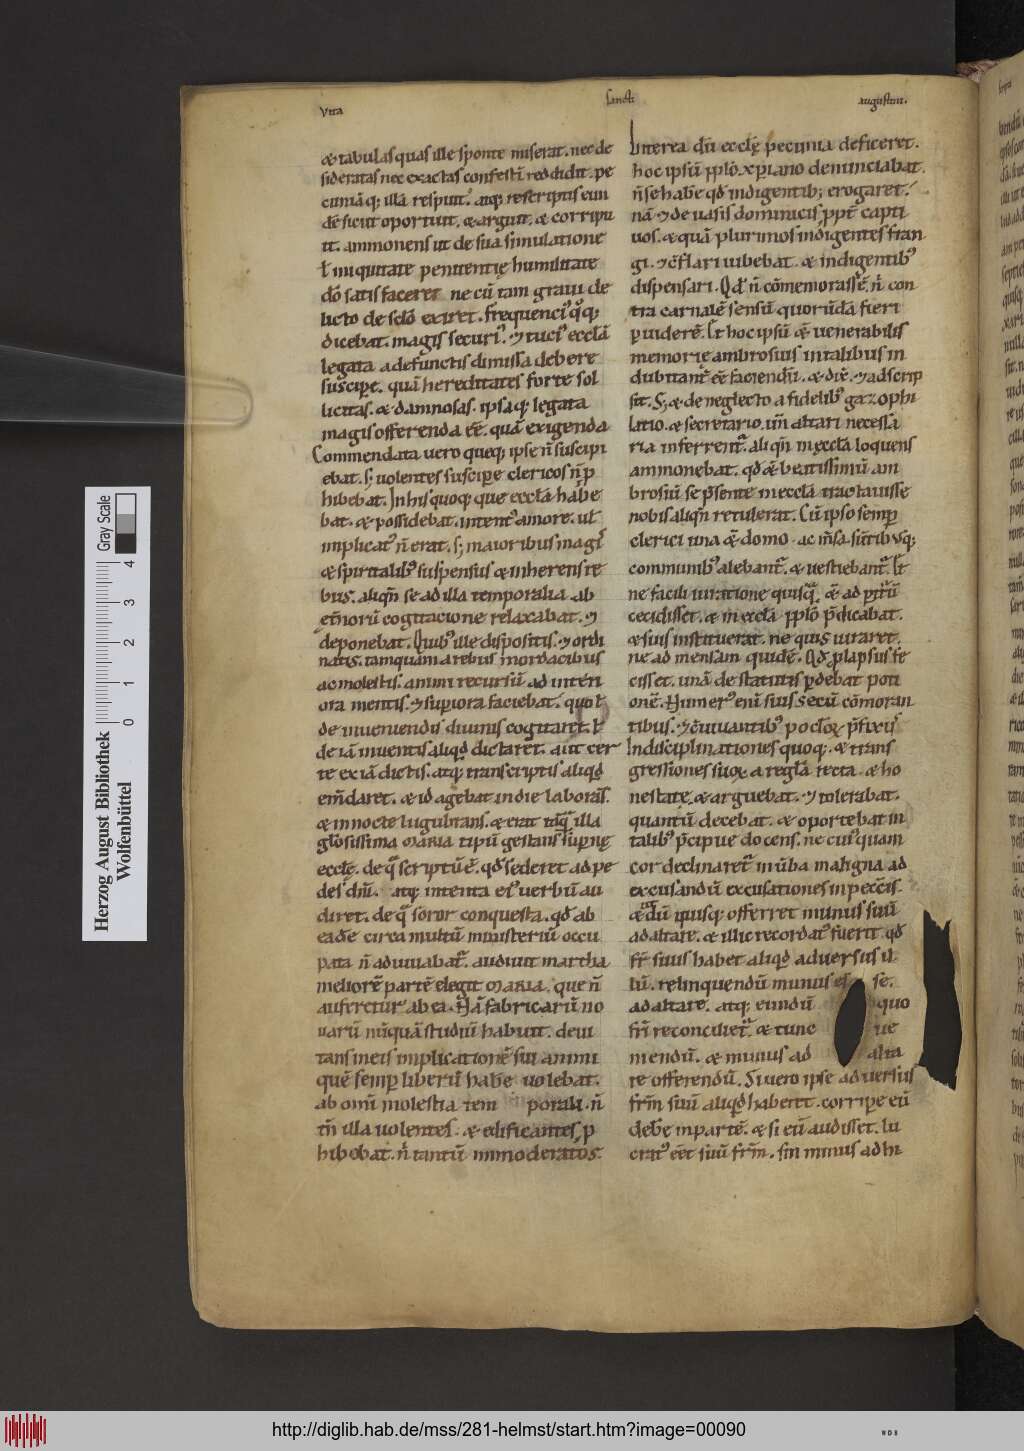 Vita
sancti
augustini.
& tabulas quas ille sponte miserat. nec de
sideratas nec exactas confestī reddidit. pe
cuniāq; illā respuit. atq; rescriptis eun
dē sicut oportuit. & arguit. & corripu
it. ammonens ut de sua simulatione
ł iniquitate penitentię humilitate
dō satisfaceret ne cū tam graui de
licto de sc̄lō exiret. frequenci᾿ q᾿q;
dicebat. magis securi᾿. ⁊ tuci᾿ ecclām
legata a defunctis dimissa debere
suscipe. quā hereditates forte sol
licitas. & damnosas. ipsaq; legata
magis offerenda ēē. quā exigenda
Commendata uero queq; ipse n̄ suscipi
ebat. s; uolentes suscipe clericos n̄ p
hibebat. In his quoq; que ecclā habe
bat. & possidebat. intent᾿ amore. uł
implicat᾿ n̄ erat. s; maioribus magi᾿
& spiritalib᾿ suspensus & inherens re
bus. aliqn̄ se ad illa temporalia ab
et̄noru cogitacione relaxabat. ⁊
deponebat. Quib᾿ ille dispositis. ⁊ ordi
natis. tamquam a rebus mordacibus
ac molestis. animi recursū ad interi
ora mentis. ⁊ supiora faciebat. quo ł
de inueniendis diuinis cogitaret. ł
de iā inuentis aliqd dictaret. aut cer
te ex iā dictis. atq; transcriptis aliqd
em̄daret. & id agebat in die laborās.
& in nocte lugubrans. & erat tāq illa
glosissima MARIA tipū gestans supnę
ecclę. de q scriptū ē. qd sederet ad pe
des dn̄i. atq; intenta ei᾿ uerbū au
diret. de q soror conquesta. qd ab
eadē circa multū ministeriū occu
pata n̄ adiuuabat. audiuit martha
meliorē partē elegit MARIA. que n̄
auferetur ab ea. Nā fabricarū no
uarū nūquā studiū habuit. deui
tans in eis implicationē sui animi
quē semp liberū habe uolebat.
ab omī molestia tem porali. n̄
tn̄ illa uolentes. & edificantes p
hibebat. n̄ tantū immoderatos.
Interea dū ecclę pecunia deficeret.
hoc ipsū pplō xpiano denunciabat.
n̄ se habē qd indigentib; erogaret.
nā ⁊ de uasis dominicis ppt̄ capti
uos. & quā plurimos indigentes fran
gi. ⁊ c̄flari iubebat. & indigentib᾿
dispensari. Qd n̄ cōmemorassē. n̄ con
tra carnalē sensū quorūdā fieri
puiderē. Et hoc ipsū & uenerabilis
memorie ambrosius in talibus in
dubitant̄ ēē faciendū. & dix̄. ⁊ adscrip
sit. S; & de neglecto a fidelib᾿ gazophi
latio. & secretario. un̄ altari necessa
ria inferrent. aliqn̄ in ecclā loquens
ammonebat. qd & beatissimū am
brosiū se p̄sente in ecclā tractauisse
nobis aliqn̄ retulerat. Cū ipso semp
clerici una & domo. ac m̄sa. sūtibusq;
communib᾿ alebant. & uestiebant. Et
ne facili iuratione quisq & ad piurū
cecidisset. & in ecclā pplō p̄dicabat.
& suis instituerat. ne quis iuraret.
ne ad mensam quidē. Qd plapsus fe
cisset. unā de statutis pdebat poti
onē. Numer᾿ enī suis secū cōmoran
tibus. ⁊ c̄uiuantib᾿ poculoꝝ p̄fixus
Indisciplinationes quoq;. & trans
gressiones suoꝝ a regla recta & ho
nestate & arguebat. ⁊ tolerabat.
quantū decebat. & oportebat in
talib᾿ p̄cipue docens. ne cui᾿quam
cor declinaret in ūba maligna ad
excusandū excusationes in peccīs.
& dū quisq; offerret munus suū
ad altare. & illic recordat᾿ fuerit qd
fr̄ suus habet aliqd aduersus il
lū. relinquendū munus es se.
ad altare. atq; eundū quo
fr̄i reconciliet. & tunc ue
niendū. & munus ad alta
re offerendū. Si uero ipse aduersus
frm̄ suū aliqd haberet. corripe eū
debe in partē. & si eū audisset. lu
crat᾿ eēt suū frm̄. sin minus adhi
Herzog August Bibliothek
Wolfenbüttel
0 1 2 3 4
Gray Scale
http://diglib.hab.de/mss/281-helmst/start.htm?image=00090